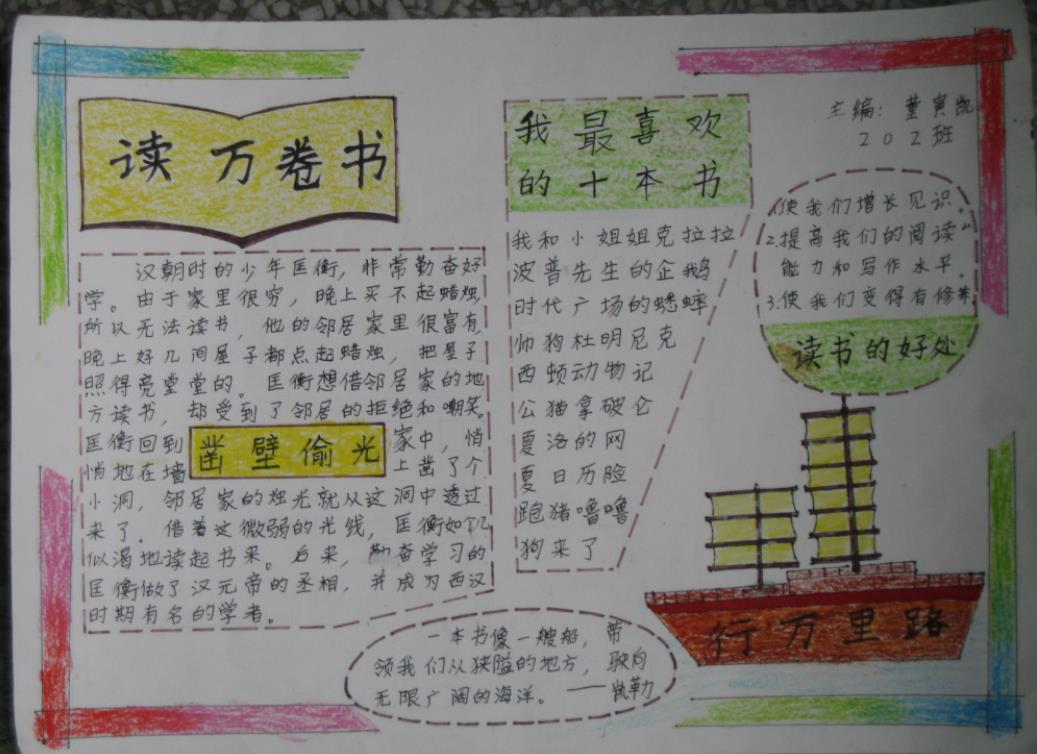 读万卷书
汉朝时的少年匡衡，非常勤奋好
学。由于家里很穷，晚上买不起蜡烛，
所以无法读书，他的邻居家里很富有，
晚上好几间屋子都点起蜡烛，把屋子
照得亮堂堂的。匡衡想借邻居家的地
方读书，却受到了邻居的拒绝和嘲笑。
匡衡回到 家中，悄
凿壁偷光
悄地在墙 上凿了个
小洞，邻居家的烛光就从这洞中透过
来了。借着这微弱的光线，匡衡如饥
似渴地读起书来。后来，勤奋学习的
匡衡做了汉元帝的丞相，并成为西汉
时期有名的学者。
我最喜欢
的十本书
我和小姐姐克拉拉
波普先生的企鹅
时代广场的蟋蟀
帅狗杜明尼克
西顿动物记
公猫拿破仑
夏洛的网
夏日历险
跑猪噜噜
狗来了
主编：董寅凯
202班
1.使我们增长见识。
2.提高我们的阅读
能力和写作水平。
3.使我们变得有修养
读书的好处
行万里路
一本书像一艘船，带
领我们从狭隘的地方，驶向
无限广阔的海洋。——凯勒